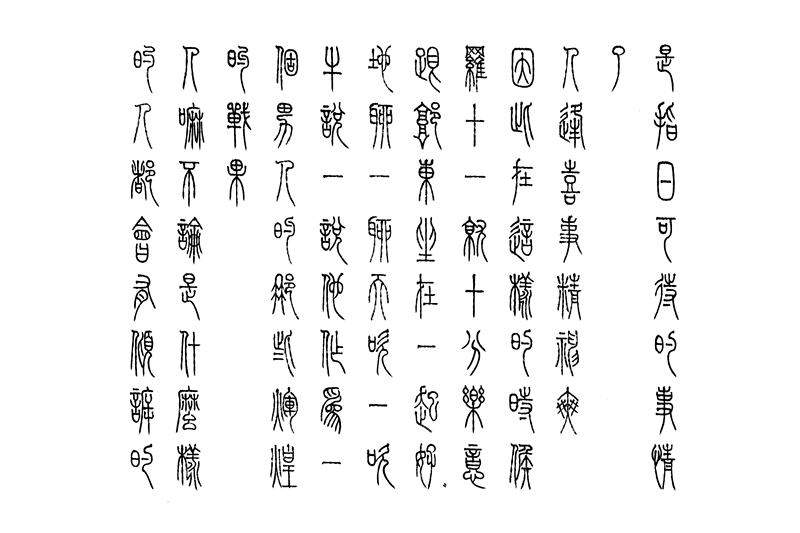 是指日可待的事情
了
人逢喜事精神爽
因此在這樣的時候
羅十一就十分樂意
跟東坐在一起好。
地聊一聊天吹一吹
牛說一說他作爲一
個男人的那些輝煌
的戰果
人嘛不論是什麼樣
的人都會有傾訴的